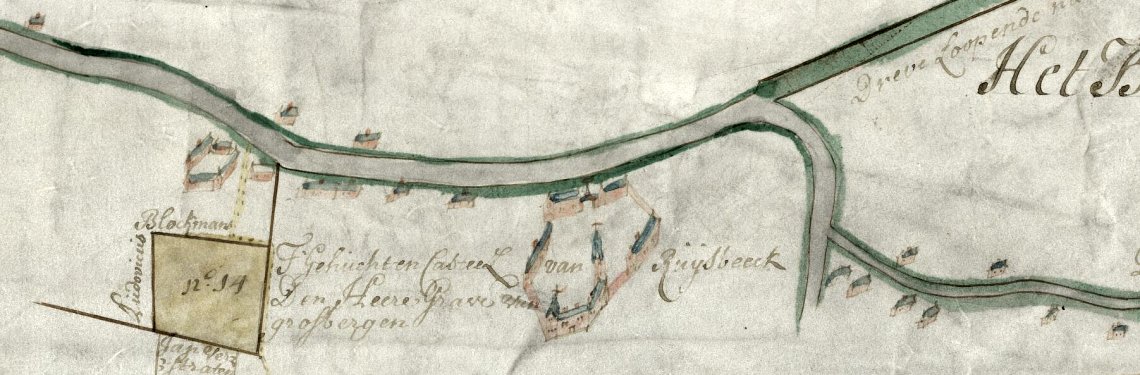 Dreve Loopende na
Het
Blockmans
Ludovicus
nº 14
T'gehucht en Casteel van Ruijsbeeck
Den Heere Grave van
grosbergen
Jan
straten